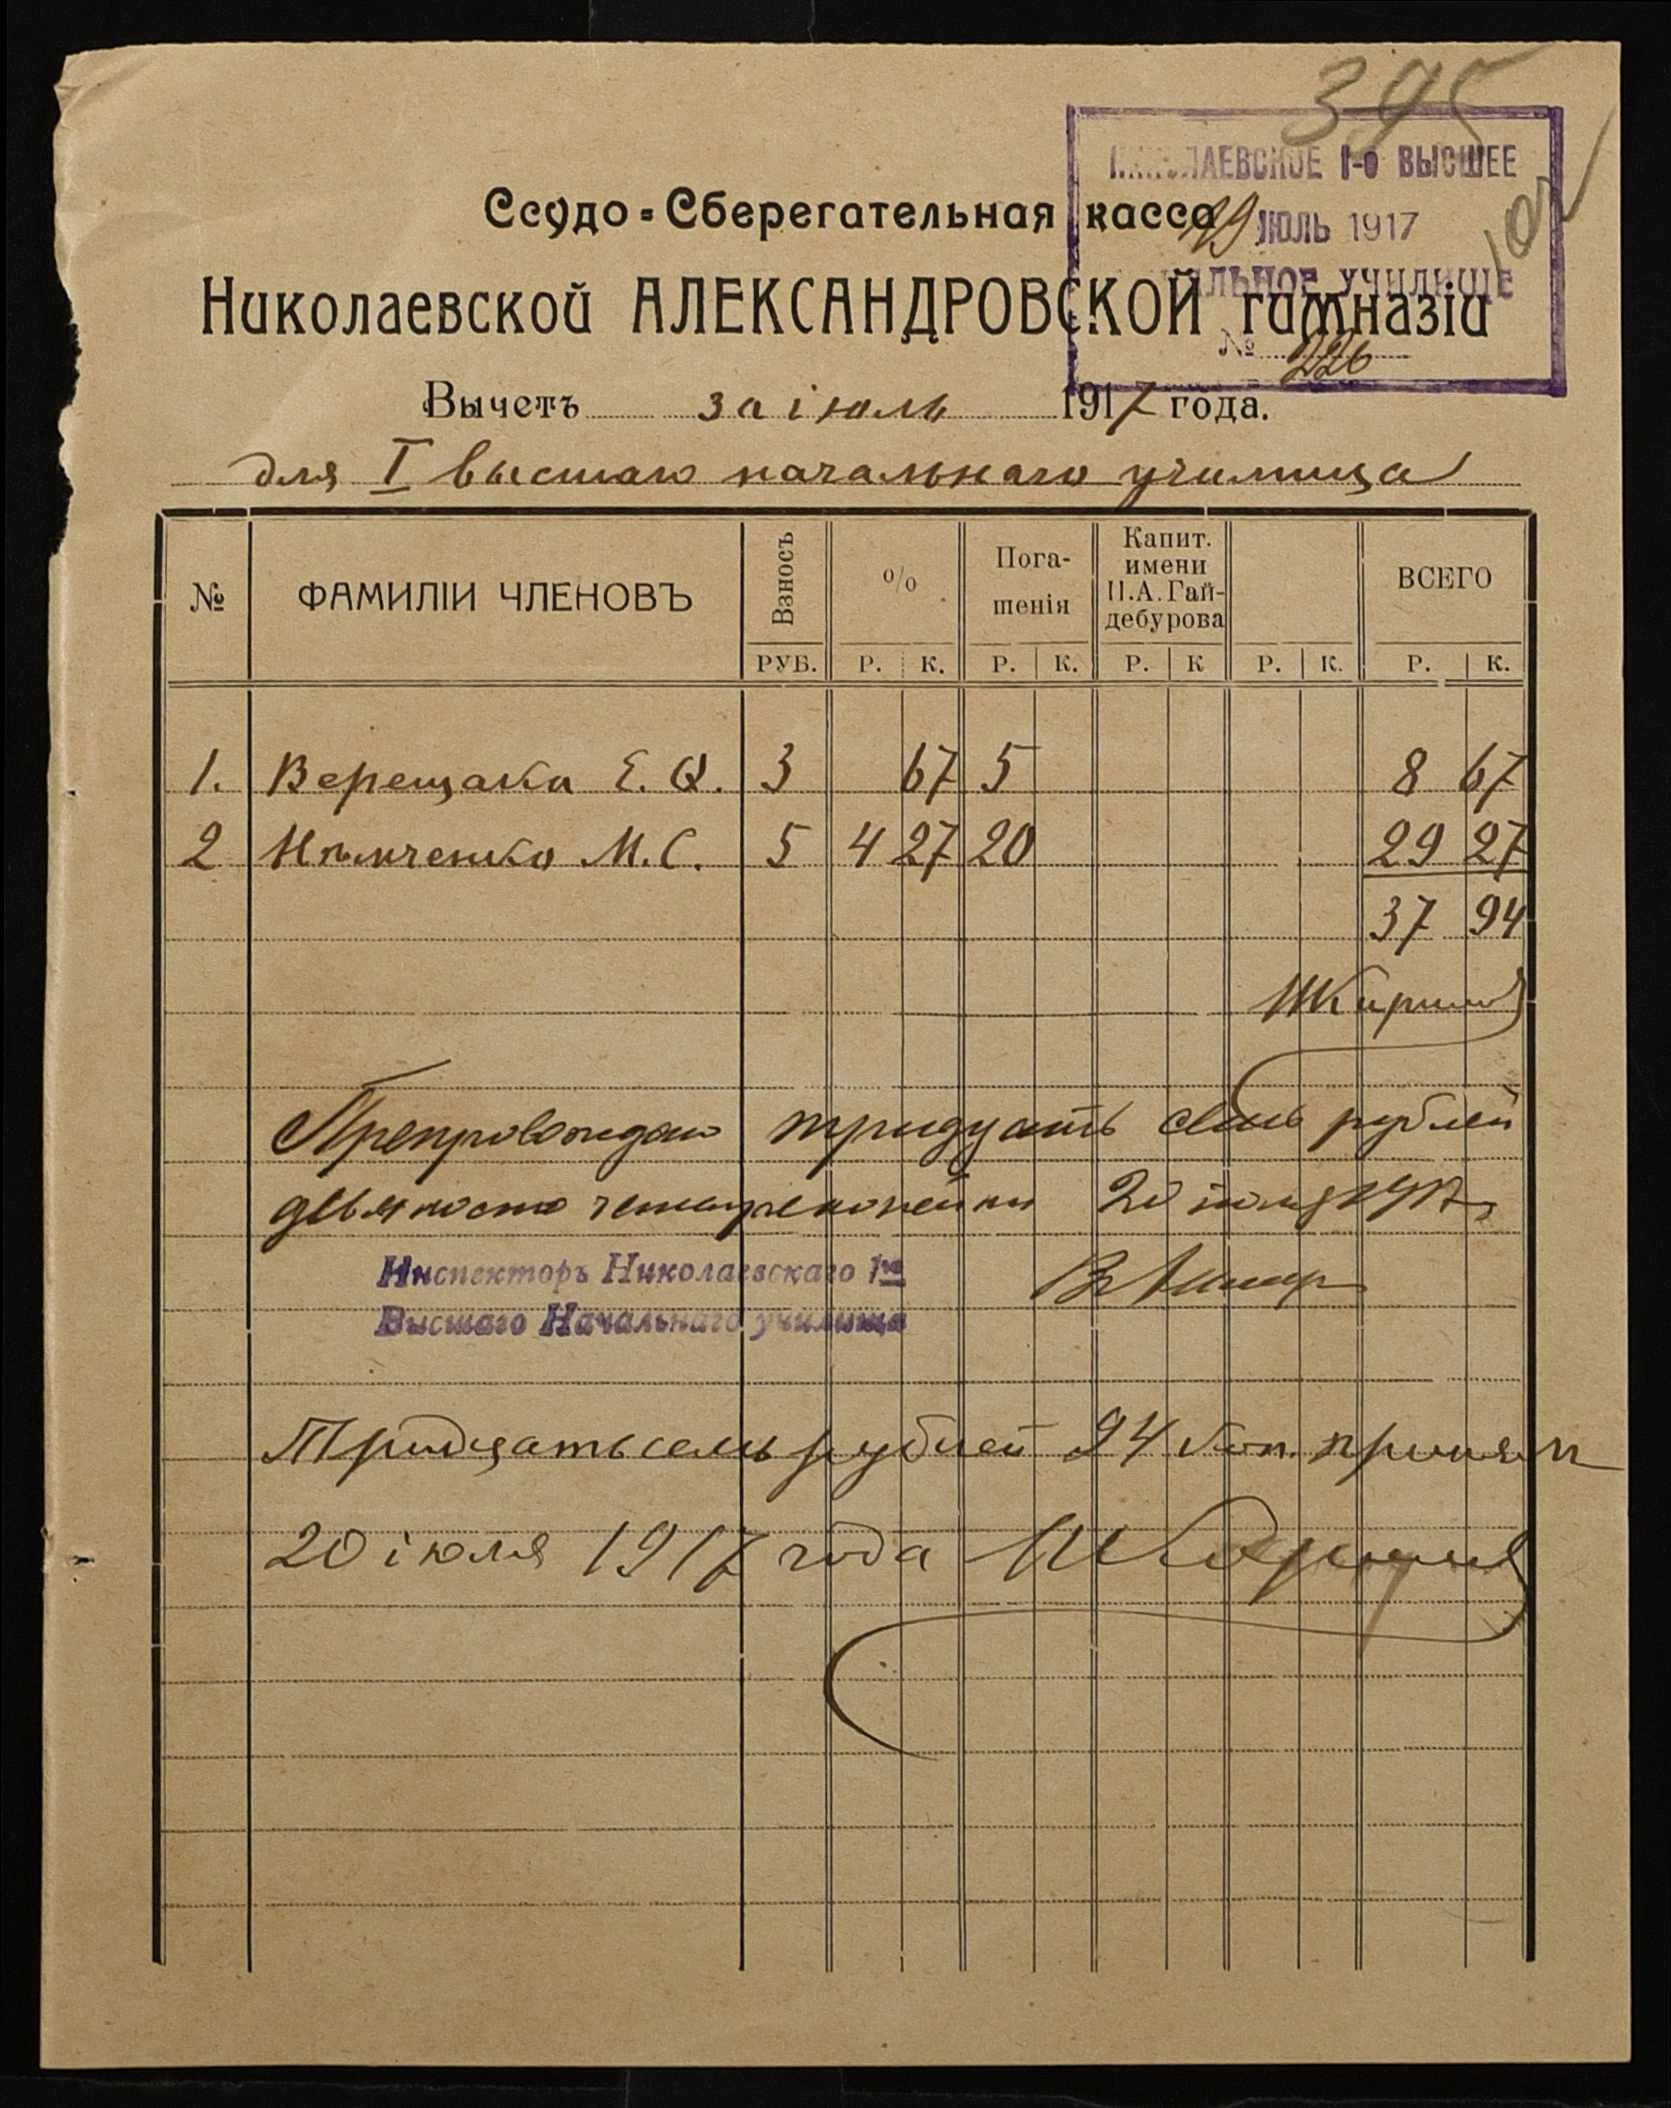 395
НИКОЛАЕВСКОЕ 1-о ВЫСШЕЕ
19 ИЮЛЬ 1917
НАЧАЛЬНОЕ УЧИЛИЩЕ
№ 226
Ссудо-Сберегательная касса
Николаевской АЛЕКСАНДРОВСКОЙ гимназіи
Вычетъ за іюль 1917 года.
для I высшаго начальнаго училища
№ ФАМИЛІИ ЧЛЕНОВЪ Взносъ % Пога-шенія Капит. имени П.А. Гай-дебурова ВСЕГО
РУБ. Р. К. Р. К. Р. К Р. К. Р. К.
1. Верещака Е. Ѳ. 3 67 5 8 67
2 Нѣмченко М. С. 5 4 27 20 29 27
37 94
Препровождаю тридцать семь рублей
девяносто четыре копейки 20 іюля 1917 г.
Инспекторъ Николаевскаго 1го
Высшаго Начальнаго училища
Тридцать семь рублей 94 коп. принял
20 іюля 1917 года